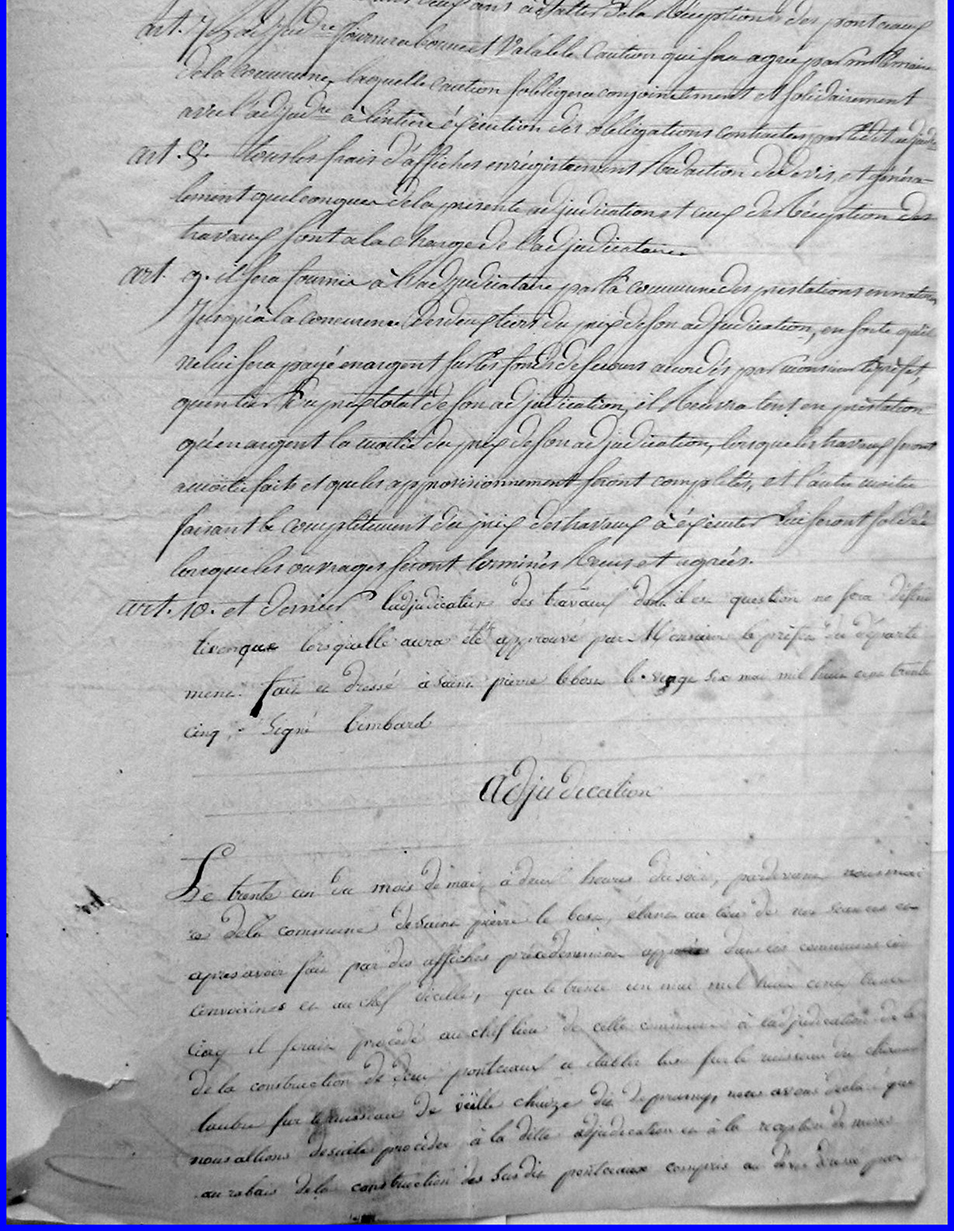 deux ans à datter de la Réception des pontceaux
art. 7. L'adjud.re fournira bonne et Valable Caution qui sera agréé par mr le maire
de la commune, laquelle caution s'obligera conjointement et solidairement
avec l'adjud.re à l'entière éxécution des obligations contractées par le dit adjud.re
art. 8. tous les frais d'affiches enrégistrement Rédaction de devis, et généra-
lement quelconques de la présente adjudication et ceux de Réception des
travaux sont a la charge de l'adjudicataire
art. 9. il sera fournie à l'adjudicataire par la commune des prestations en nature
Jusqu'à la concurence des deux tiers du prix de son adjudication, en sorte qu'il
ne lui sera payé en argent sur les fonds de secours accordés par monsieur le préfet,
qu'un tier du prix total de son adjudication, il Recevra tant en prestation
qu'en argent la moitié du prix de son adjudication, lorsque les travaux seront
a moitié faits et que les approvisionnement seront complètés, et l'autre moitié
faisant le complétement du prix des travaux à éxécuter lui seront soldée
lorsque les ouvrages seront terminés Recus et agréés.
art. 10. et dernier ladjudication des travaux dont il es question ne sera défini
tive que lorsquelle aura été approuvé par Monsieur le préfet du départe
ment. fait et dressé à Saint pierre le bost le vingt six mai mil huit cent trente
cinq. Signé Lombard
Adjudication
Le trente un du mois de mai, à deux heures du soir, pardevant nous mai
re de la commune de Saint pierre le bost, étant au lieu de nos séances et
apres avoir fait par des affiches précédemment apposées dans les communes cir
convoisines et au chef dicelle, que le trente un mai mil huit cent trente
cinq il serait procédé au chef lieu de celle commune à ladjudication de la
de la construction de deux pontceaux a établir lun sur le ruisseau du
lautre sur le ruisseau de vieille chaize dit de prumy, nous avons declaré que
nous allions desuite procéder à la ditte adjudication et à la reception de mises
au rabais de la construction des sus dits pontceaux compris au devis dressé par